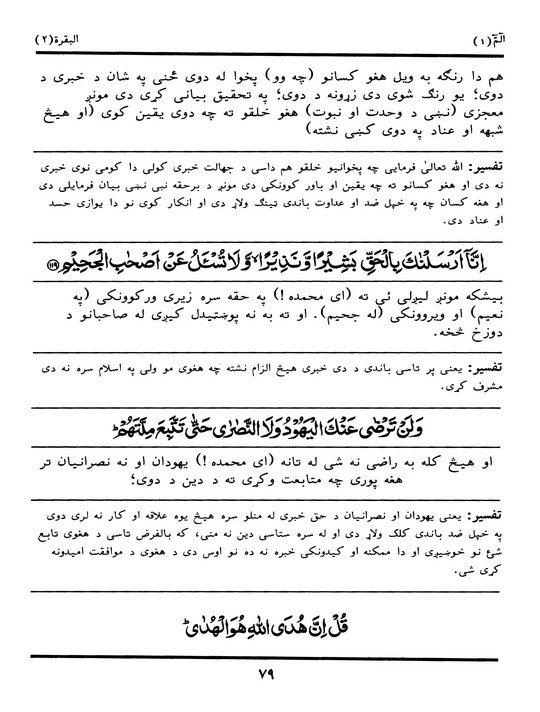 الٓمّٓ (۱)
البقرة (۲)
هم دا رنګه به ویل هغو کسانو (چه وو) پخوا له دوی څنې په شان د خبرې د
دوی؛ یو رنګ شوی دی زړونه د دوی؛ په تحقیق بیانې کړی دی مونږ
معجزې (نښې د وحدت او نبوت) هغو خلقو ته چه دوی یقین کوی (او هیڅ
شبهه او عناد په دوی کښې نشته)
تفسیر: الله تعالیٰ فرمایی چه پخوانیو خلقو هم داسې د جهالت خبرې کولې دا کومې نوې خبرې
نه دی او هغو کسانو ته چه یقین او باور کوونکی دی مونږ د برحقه نبی نښې بیان فرمایلې دی
او هغه کسان چه په خپل ضد او عداوت باندې ټینګ ولاړ دی او انکار کوی نو دا یوازې حسد
او عناد دی.
اِنَّآ اَرْسَلْنٰكَ بِالْحَقِّ بَشِيْرًا وَّنَذِيْرًا ۙ وَّلَا تُسْـَٔلُ عَنْ اَصْحٰبِ الْجَحِيْمِ ﴿۱۱۹﴾
بیشکه مونږ لیږلی ئې ته (ای محمده !) په حقه سره زیری ورکوونکی (په
نعیم) او ویروونکی (له جحیم). او ته به نه پوښتیدل کیږی له صاحبانو د
دوزخ څخه.
تفسیر: یعنې پر تاسې باندې د دې خبرې هیڅ الزام نشته چه هغوی مو ولې په اسلام سره نه دی
مشرف کړی.
وَلَنْ تَرْضٰى عَنْكَ الْيَهُوْدُ وَلَا النَّصٰرٰى حَتّٰى تَتَّبِعَ مِلَّتَهُمْ ؕ
او هیڅ کله به راضی نه شی له تانه (ای محمده !) یهودان او نه نصرانیان تر
هغه پورې چه متابعت وکړې ته د دین د دوی؛
تفسیر: یعنې یهودان او نصرانیان د حق خبرې له منلو سره هیڅ یوه علاقه او کار نه لری دوی
په خپل ضد باندې کلک ولاړ دی او له سره ستاسې دین نه منی، که بالفرض تاسې د هغوی تابع
شئ نو خوښیږی او دا ممکنه او کیدونکې خبره نه ده نو اوس دې د هغوی د موافقت امیدونه
کړی شی.
قُلْ اِنَّ هُدَى اللّٰهِ هُوَ الْهُدٰى ؕ
۷۹